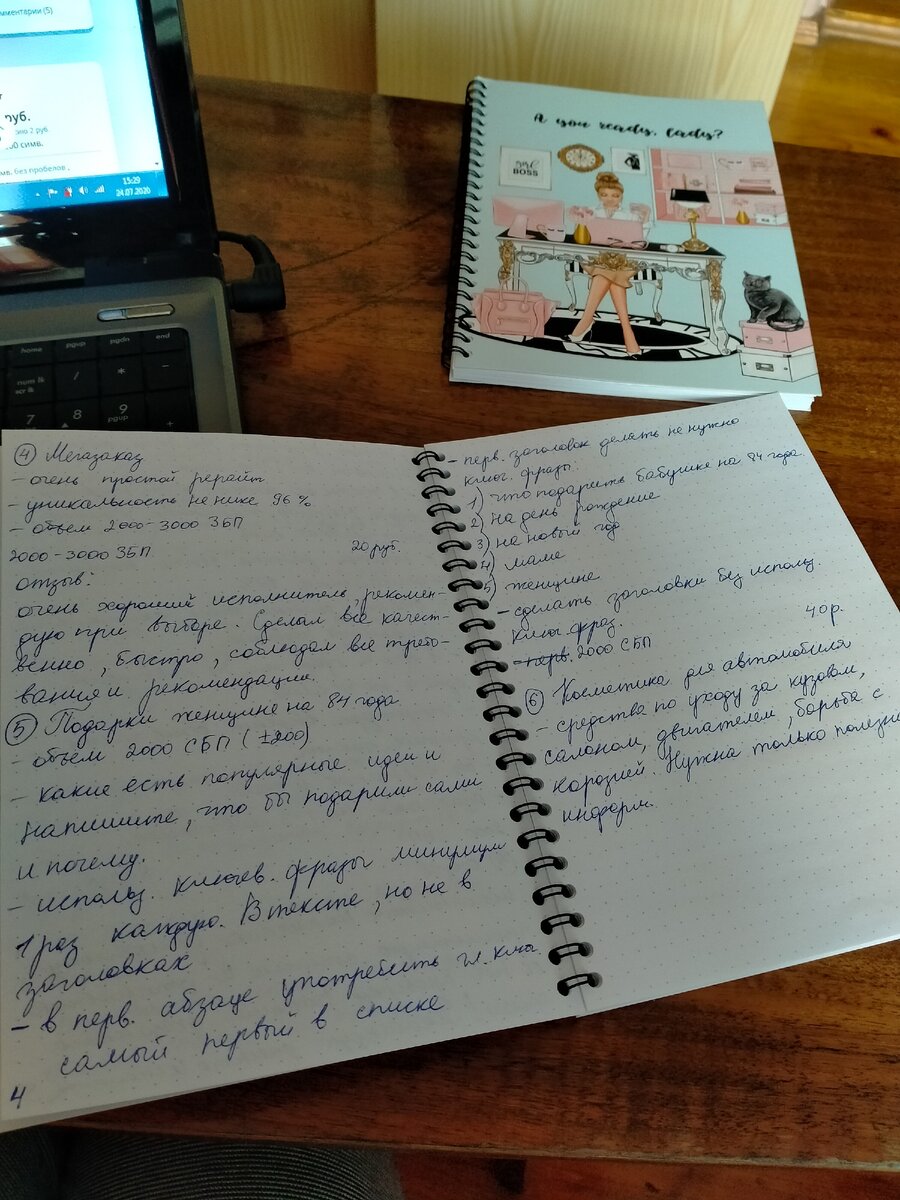 мментарии (5)
руб.
2 руб
00 симв.
мв. без пробелов
15:29
24.07.2020
home pgup pgdn end
num lk / * -
scr lk
7 8 9
pgup
A you ready, lady?
girl
BOSS
④ Мегазаказ
- очень простой рерайт
- уникальность не ниже 96 %
- объем 2000-3000 ЗБП
2000-3000 ЗБП 20 руб.
отзыв:
очень хороший исполнитель, рекомен-
дую при выборе. Сделал все качест-
венно, быстро, соблюдал все требо-
вания и рекомендации.
⑤ Подарки женщине на 84 года
- объем 2000 СБП (±200)
- какие есть популярные идеи и
напишите, что бы подарили сами
и почему.
- использ. ключев. фразы минимум
1 раз каждую. В тексте, но не в
заголовках
- в перв. абзаце употребить гл. ключ
самый первый в списке
4
- перв. заголовок делать не нужно
ключ. фразы:
1) что подарить бабушке на 84 года
2) на день рождение
3) на новый год
4) маме
5) женщине
- сделать заголовки без использ.
ключ. фраз.
- перв. 2000 СБП 40 р.
⑥ Косметика для автомобиля
- средства по уходу за кузовом,
салоном, двигателем, борьба с
корозией. Нужна только полезн
информ.